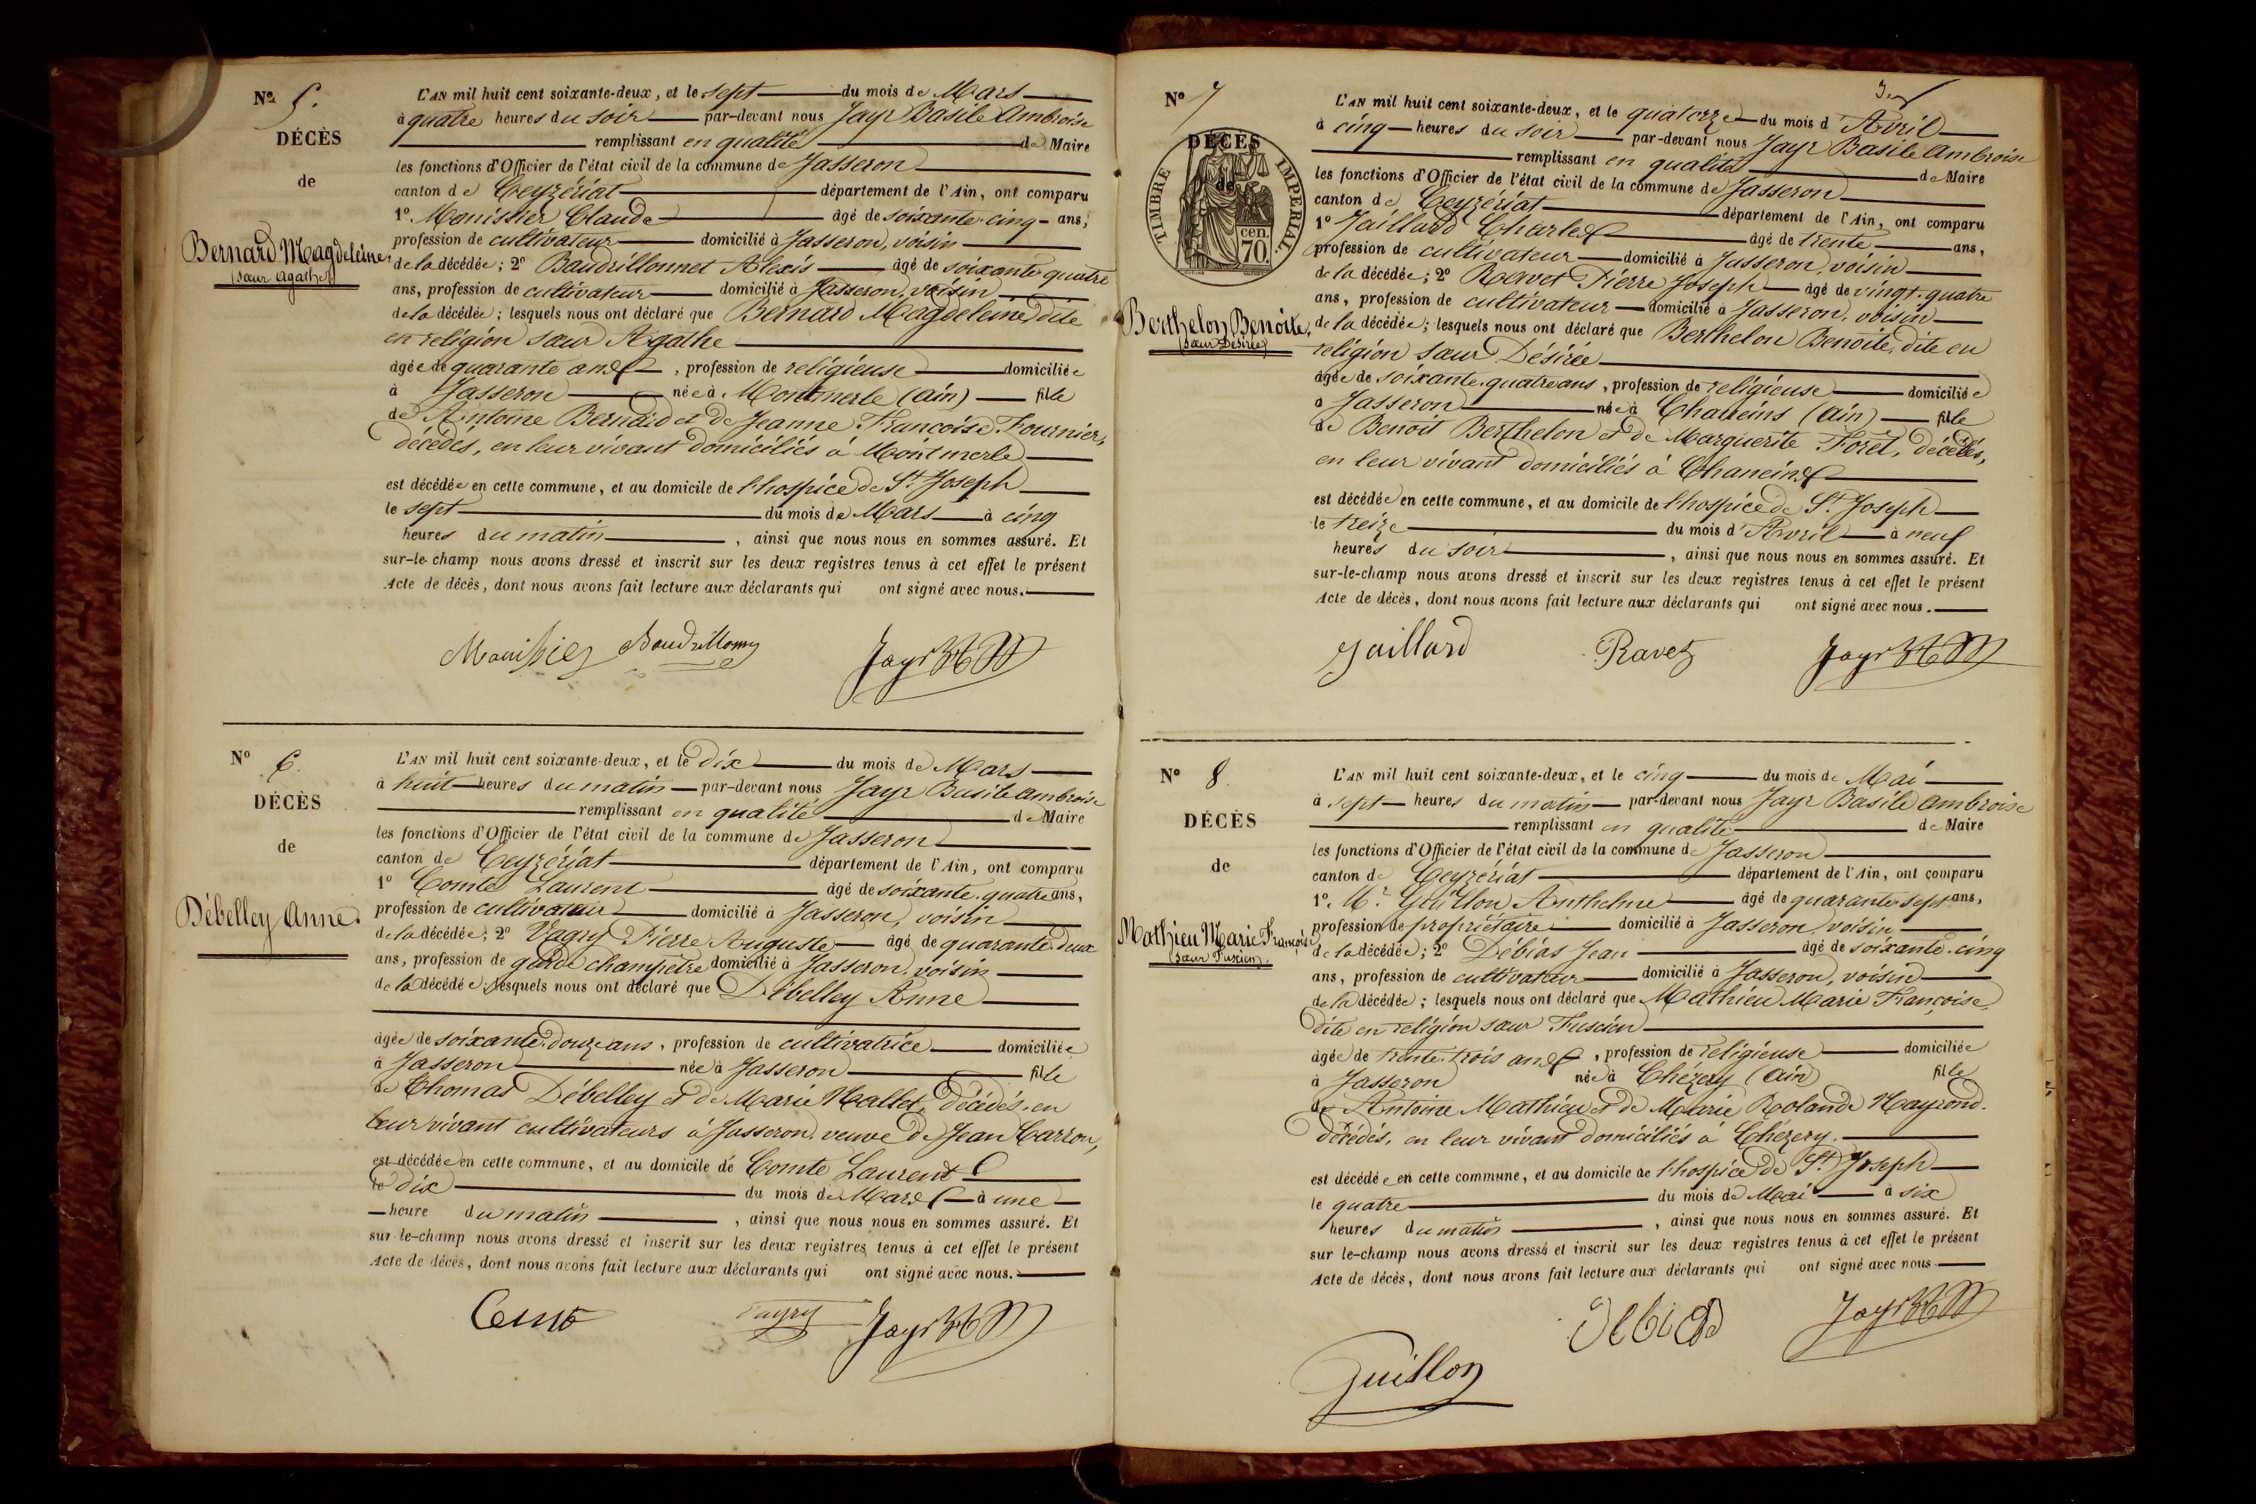 Nº 5.
DÉCÈS
de
Bernard Magdeleine
(sœur Agathe)
L'AN mil huit cent soixante-deux, et le sept du mois de Mars
à quatre heures du soir par-devant nous Jayr Basile Ambroise
remplissant en qualité de Maire
les fonctions d'Officier de l'état civil de la commune de Jasseron
canton de Ceyzériat département de l'Ain, ont comparu
1º. Monissier Claude âgé de soixante-cinq ans,
profession de cultivateur domicilié à Jasseron, voisin
de la décédée; 2º Baudrillonnet Alexis âgé de soixante quatre
ans, profession de cultivateur domicilié à Jasseron, voisin
de la décédée; lesquels nous ont déclaré que Bernard Magdeleine, dite
en religion sœur Agathe
âgée de quarante ans, profession de religieuse domiciliée
à Jasseron née à Montmerle (ain) fille
de Antoine Bernard et de Jeanne Françoise Fournier,
décédés, en leur vivant domiciliés à Montmerle
est décédée en cette commune, et au domicile de l'hospice de St Joseph
le sept du mois de Mars à cinq
heures du matin, ainsi que nous nous en sommes assuré. Et
sur-le-champ nous avons dressé et inscrit sur les deux registres tenus à cet effet le présent
Acte de décès, dont nous avons fait lecture aux déclarants qui ont signé avec nous.
Jayr
Nº 6.
DÉCÈS
de
Débelley Anne.
L'AN mil huit cent soixante-deux, et le dix du mois de Mars
à huit heures du matin par-devant nous Jayr Basile ambroise
remplissant en qualité de Maire
les fonctions d'Officier de l'état civil de la commune de Jasseron
canton de Ceyzériat département de l'Ain, ont comparu
1º Comte Laurent âgé de soixante-quatre ans,
profession de cultivateur domicilié à Jasseron, voisin
de la décédée; 2º Vagry Pierre Auguste âgé de quarante-deux
ans, profession de garde champêtre domicilié à Jasseron, voisin
de la décédée; lesquels nous ont déclaré que Débelley Anne
âgée de soixante-douze ans, profession de cultivatrice domiciliée
à Jasseron née à Jasseron fille
de Thomas Débelley et de Marie Mallet, décédés, en
leur vivant cultivateurs à Jasseron, veuve de Jean Carron,
est décédée en cette commune, et au domicile de Comte Laurent
le dix du mois de Mars à une
heure du matin, ainsi que nous nous en sommes assuré. Et
sur-le-champ nous avons dressé et inscrit sur les deux registres tenus à cet effet le présent
Acte de décès, dont nous avons fait lecture aux déclarants qui ont signé avec nous.
Vagry Jayr
Nº 7
DÉCÈS
de
TIMBRE IMPÉRIAL
cen.
70.
Berthelon Benoite.
(sœur Désirée)
L'AN mil huit cent soixante-deux, et le quatorze du mois d'Avril
à cinq heures du soir par-devant nous Jayr Basile Ambroise
remplissant en qualité de Maire
les fonctions d'Officier de l'état civil de la commune de Jasseron
canton de Ceyzériat département de l'Ain, ont comparu
1º Jaillard Charles âgé de trente ans,
profession de cultivateur domicilié à Jasseron, voisin
de la décédée; 2º Ravet Pierre Joseph âgé de vingt-quatre
ans, profession de cultivateur domicilié à Jasseron, voisin
de la décédée; lesquels nous ont déclaré que Berthelon Benoite, dite en
religion sœur Désirée
âgée de soixante-quatre ans, profession de religieuse domiciliée
à Jasseron née à Chaneins (ain) fille
de Benoit Berthelon et de Marguerite Foret, décédés,
en leur vivant domiciliés à Chaneins
est décédée en cette commune, et au domicile de l'hospice de St. Joseph
le treize du mois d'Avril à neuf
heures du soir, ainsi que nous nous en sommes assuré. Et
sur-le-champ nous avons dressé et inscrit sur les deux registres tenus à cet effet le présent
Acte de décès, dont nous avons fait lecture aux déclarants qui ont signé avec nous.
Jaillard Ravet Jayr
Nº 8.
DÉCÈS
de
Mathieu Marie Françoise
(sœur Fuscien)
L'AN mil huit cent soixante-deux, et le cinq du mois de Mai
à sept heures du matin par-devant nous Jayr Basile ambroise
remplissant en qualité de Maire
les fonctions d'Officier de l'état civil de la commune de Jasseron
canton de Ceyzériat département de l'Ain, ont comparu
1º. Mr Guillon Anthelme âgé de quarante sept ans,
profession de propriétaire domicilié à Jasseron, voisin
de la décédée; 2º Débias Jean âgé de soixante-cinq
ans, profession de cultivateur domicilié à Jasseron, voisin
de la décédée; lesquels nous ont déclaré que Mathieu Marie Françoise
dite en religion sœur Fuscien
âgée de trente-trois ans, profession de religieuse domiciliée
à Jasseron née à Chézery (ain) fille
de Antoine Mathieu et de Marie Rolande
décédés, en leur vivant domiciliés à Chézery.
est décédée en cette commune, et au domicile de l'hospice de St. Joseph
le quatre du mois de Mai à six
heures du matin, ainsi que nous nous en sommes assuré. Et
sur le-champ nous avons dressé et inscrit sur les deux registres tenus à cet effet le présent
Acte de décès, dont nous avons fait lecture aux déclarants qui ont signé avec nous
Debias Jayr
Guillon